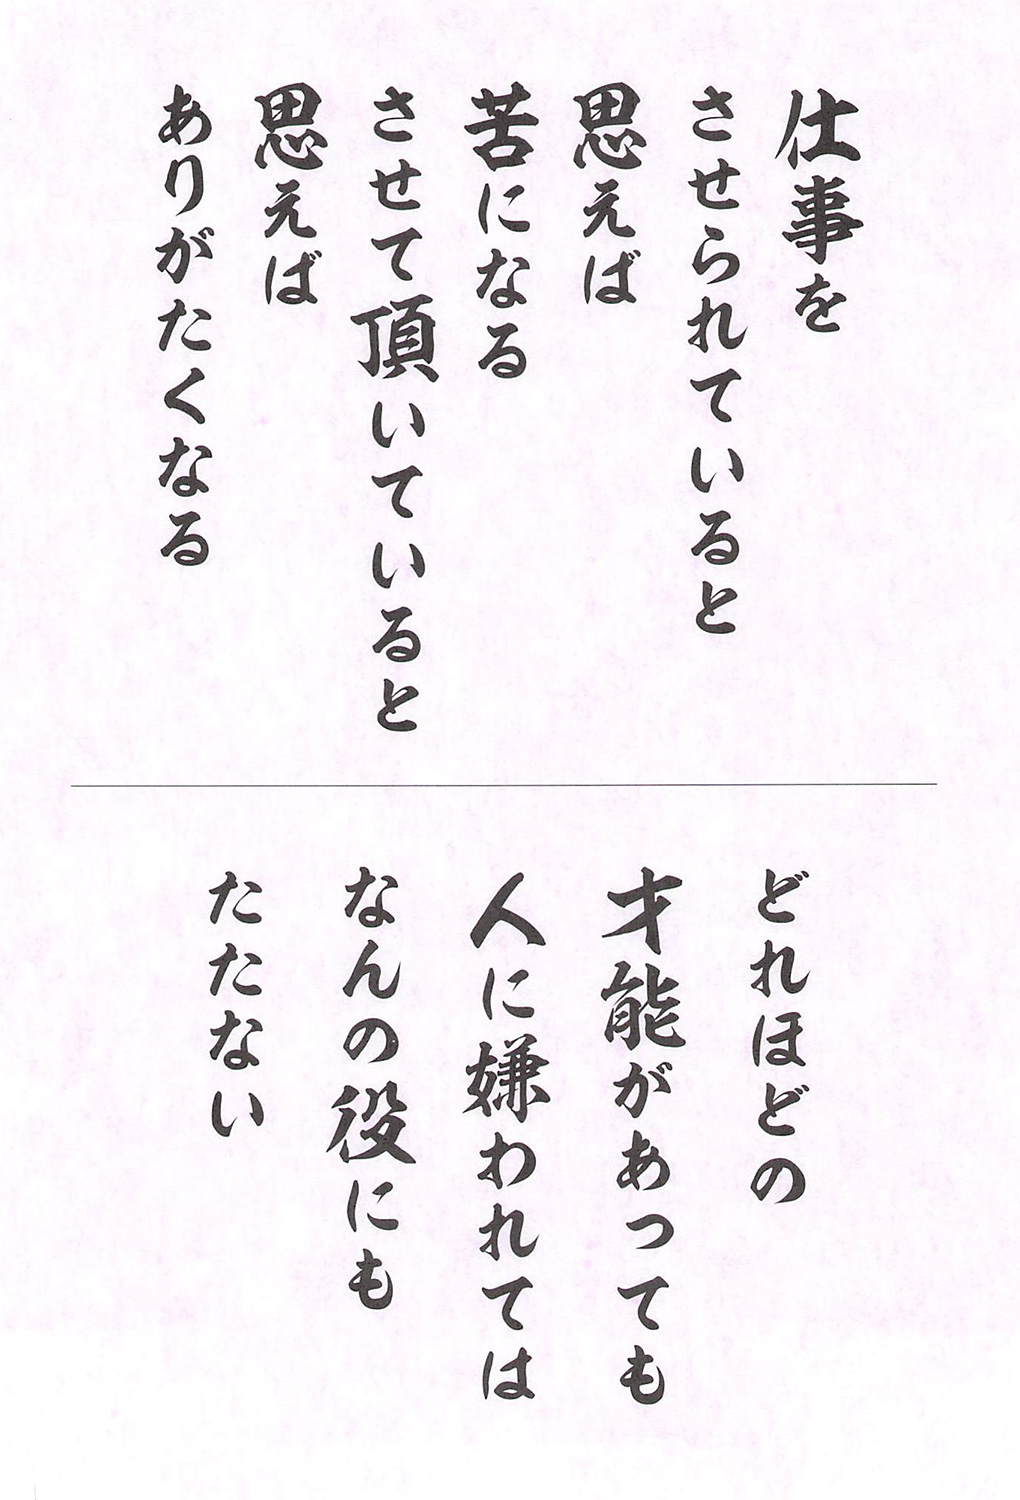 仕事を
させられていると
思えば
苦になる
させて頂いていると
思えば
ありがたくなる
どれほどの
才能があっても
人に嫌われては
なんの役にも
たたない